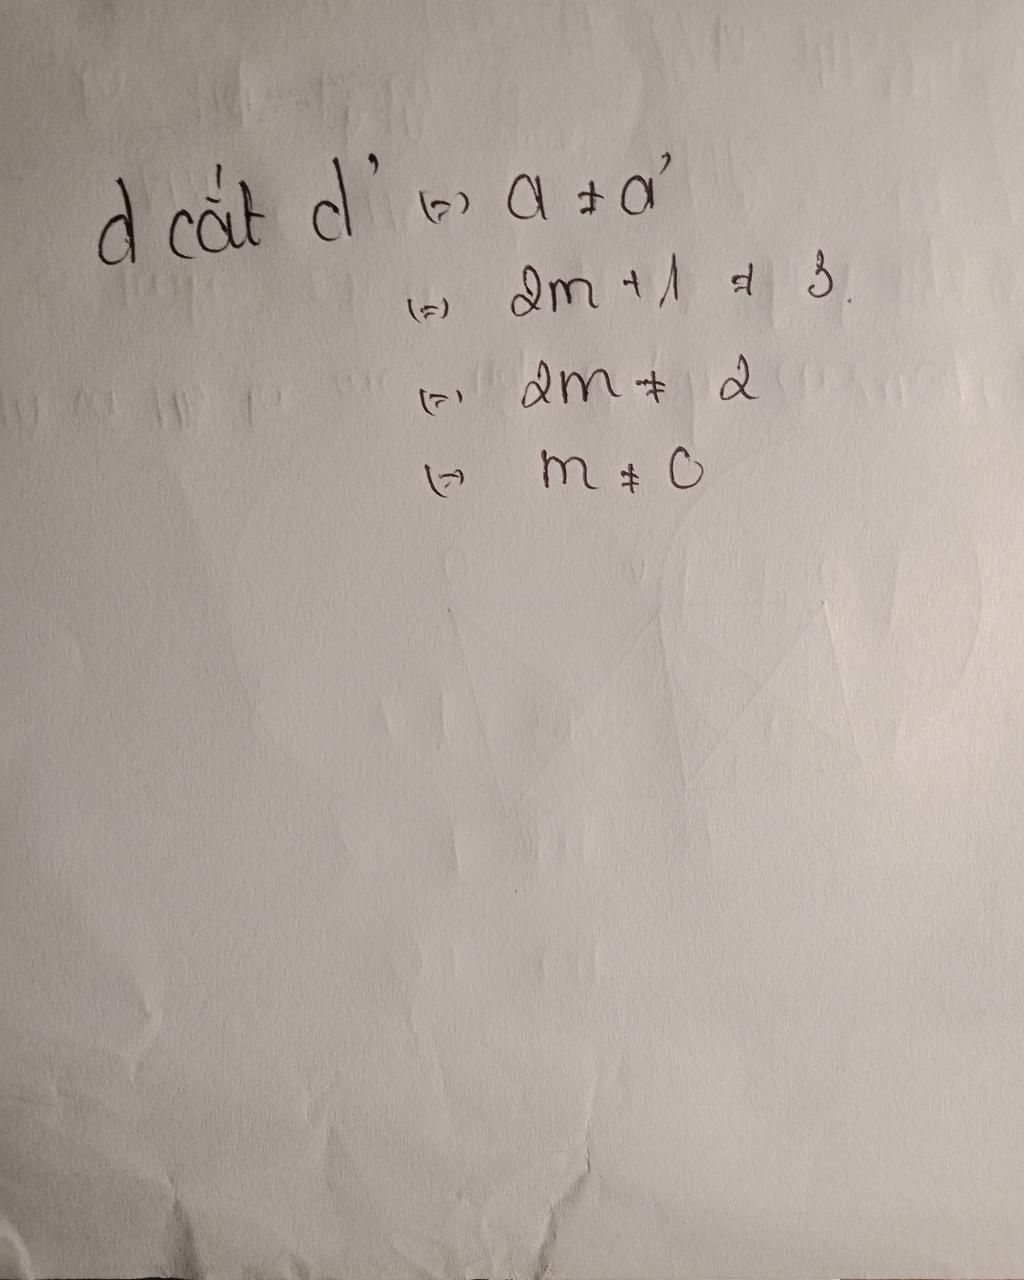 d cắt d' (=) a ≠ a'
(=) 2m + 1 ≠ 3.
(=) 2m ≠ 2
(=) m ≠ 0